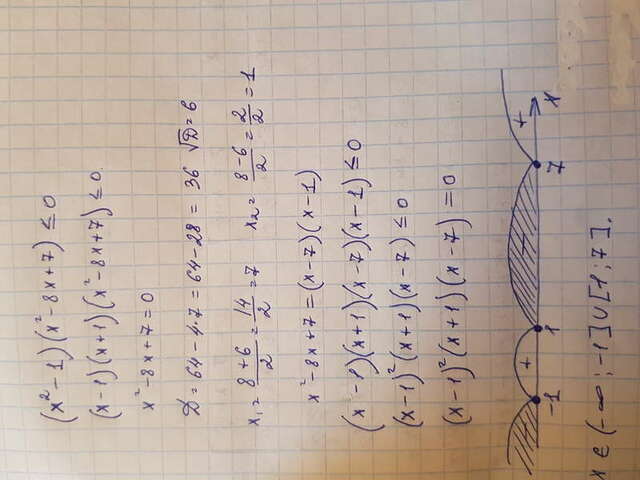 (x² - 1)(x² - 8x + 7) ≤ 0
(x - 1)(x + 1)(x² - 8x + 7) ≤ 0
x² - 8x + 7 = 0
D = 64 - 4·7 = 64 - 28 = 36 √D = 6
x₁ = (8 + 6)/2 = 14/2 = 7 x₂ = (8 - 6)/2 = 2/2 = 1
x² - 8x + 7 = (x - 7)(x - 1)
(x - 1)(x + 1)(x - 7)(x - 1) ≤ 0
(x - 1)²(x + 1)(x - 7) ≤ 0
(x - 1)²(x + 1)(x - 7) = 0
+ - +
-1 1 7 x
x ∈ (-∞; -1] ∪ [1; 7].